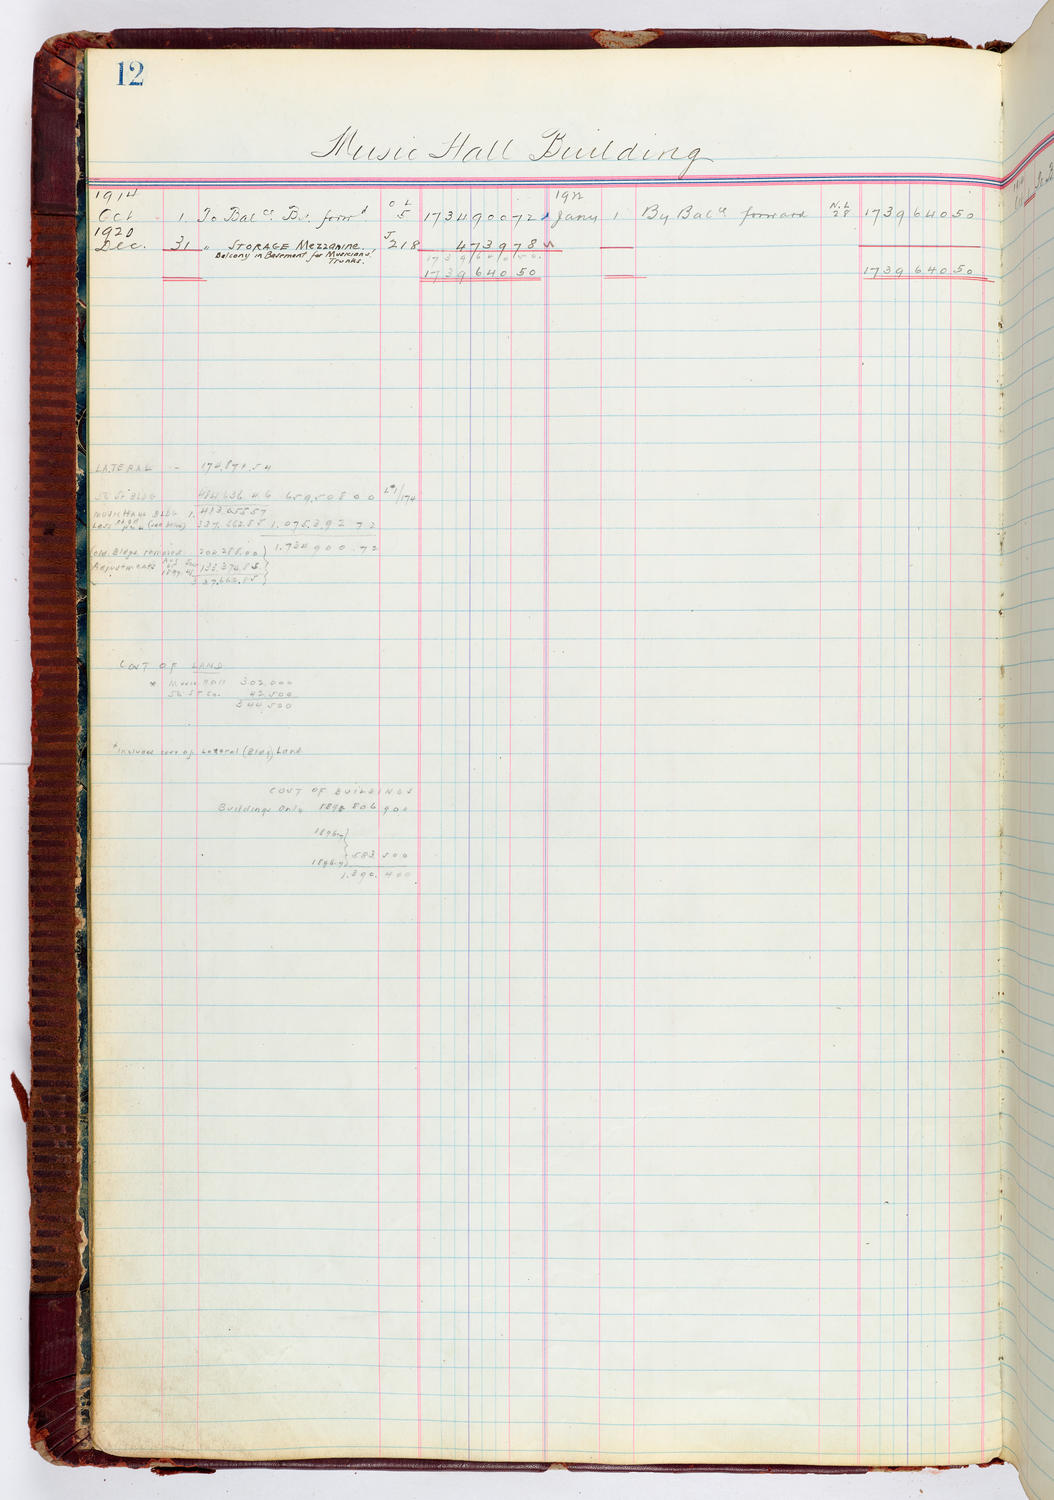 12
Music Hall Building
1914
Oct 1 To Balce B. forwd O L 5 1734900 72
1920
Dec. 31 " STORAGE Mezzanine J 218 4739 78
Balcony in Basement for Musicians
Trunks.
1739640 50
1739640 50
Jany 1 By Balce forward N.L 28 1739640 50
1739640 50
LATERAL - 174,871.54
56 St BLDG 484,636.46 659508 00 L#1/174
MUSIC HALL BLDG 1,413,055.57
Less (see below) 337,662.85 1,075,392 72
1,734,900.72
(Old Bldgs removed 204,288.00
Adjustments 133,374.85
337,662.85
COST OF LAND
* Music Hall 302,000
56 ST Co. 42,500
344,500
*Includes cost of Lateral (Bldg) Land
COST OF BUILDINGS
Buildings Only 806,900
583,500
1,390,400